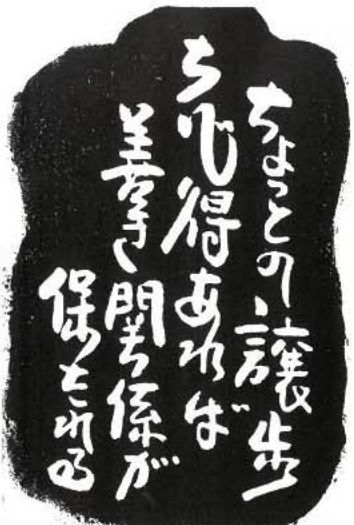 ちょっとの譲歩
心得あれば
善き関係が
保たれる